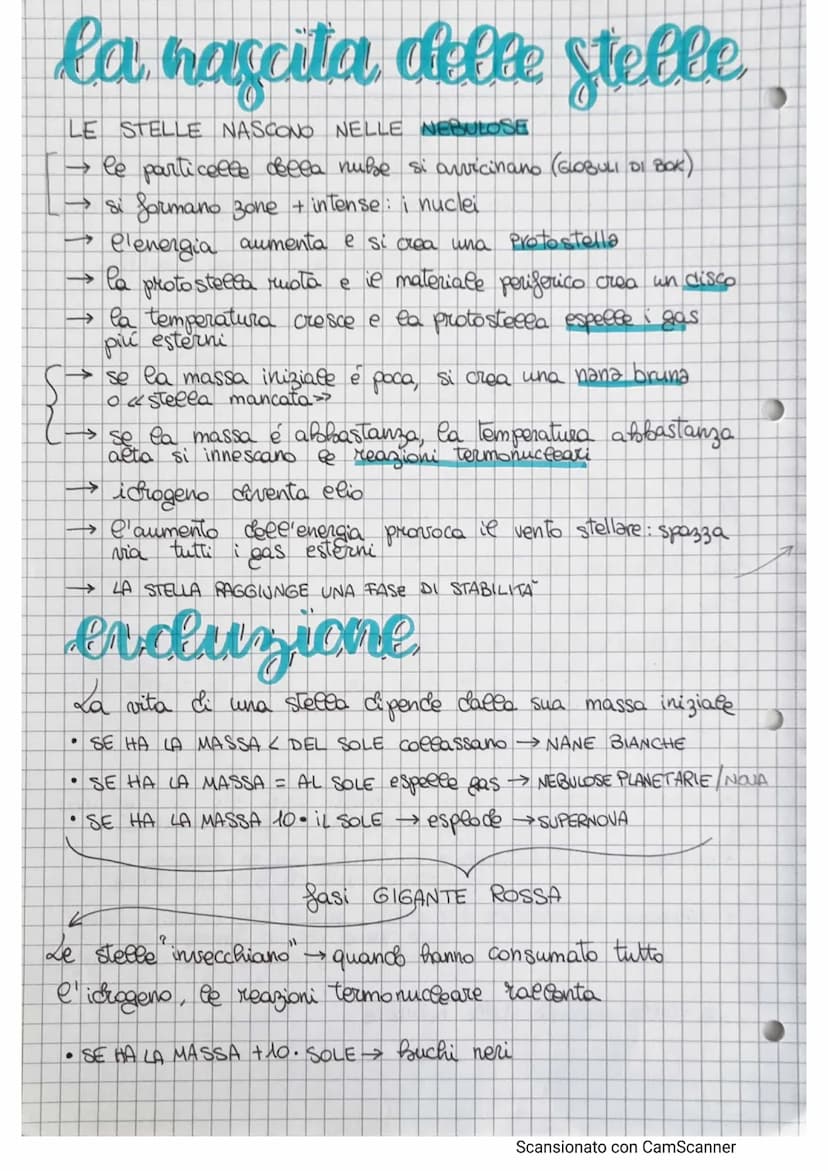 la nascita delle stelle
LE STELLE NASCONO NELLE NEBULOSE
→ le particelle della nube si avvicinano (GLOBULI DI BOK)
→ si formano zone + intense: i nuclei
→ l'energia aumenta e si crea una protostella
→ la protostella ruota e il materiale periferico crea un disco
→ la temperatura cresce e la protostella espelle i gas
piú esterni
→ se la massa iniziale é poca, si crea una nana bruna
o «stella mancata»
→ se la massa é abbastanza, la temperatura abbastanza
alta si innescano le reazioni termonucleari
→ idrogeno diventa elio
→ l'aumento dell'energia provoca il vento stellare: spazza
via tutti i gas esterni
→ LA STELLA RAGGIUNGE UNA FASE DI STABILITA'
evoluzione
La vita di una stella dipende dalla sua massa iniziale
• SE HA LA MASSA < DEL SOLE collassano → NANE BIANCHE
• SE HA LA MASSA = AL SOLE espelle gas → NEBULOSE PLANETARIE/NOVA
• SE HA LA MASSA 10• IL SOLE → esplode → SUPERNOVA
fasi GIGANTE ROSSA
Le stelle "invecchiano" → quando hanno consumato tutto
l'idrogeno, le reazioni termonucleare rallenta
• SE HA LA MASSA +10• SOLE → buchi neri
Scansionato con CamScanner